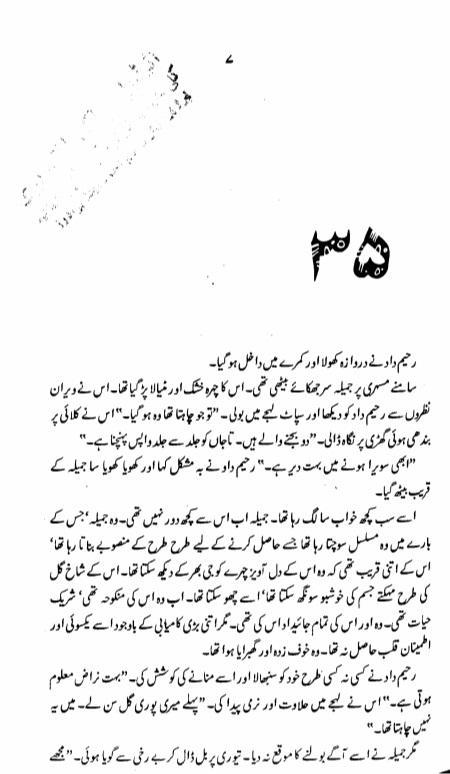 ۷
۳۵
رحیم داد نے دروازہ کھولا اور کمرے میں داخل ہو گیا۔
سامنے مسہری پر جمیلہ سر جھکائے بیٹھی تھی۔ اس کا چہرہ خشک اور مٹیالا پڑ گیا تھا۔ اس نے ویران
نظروں سے رحیم داد کو دیکھا اور سپاٹ لہجے میں بولی۔ "تو جو چاہتا تھا وہ ہو گیا۔" اس نے کلائی پر
بندھی ہوئی گھڑی پر نگاہ ڈالی۔ "دو بجنے والے ہیں۔ تاجاں کو جلد سے جلد واپس پہنچنا ہے۔"
"ابھی سویرا ہونے میں بہت دیر ہے۔" رحیم داد نے بہ مشکل کہا اور کھویا کھویا سا جمیلہ کے
قریب بیٹھ گیا۔
اسے سب کچھ خواب سا لگ رہا تھا۔ جمیلہ اب اس سے کچھ دور نہیں تھی۔ وہ جمیلہ' جس کے
بارے میں وہ مسلسل سوچتا رہا تھا جسے حاصل کرنے کے لیے طرح طرح کے منصوبے بناتا رہا تھا'
اس کے اتنی قریب تھی کہ وہ اس کے دل آویز چہرے کو جی بھر کے دیکھ سکتا تھا۔ اس کے شاخ گل
کی طرح مہکتے جسم کی خوشبو سونگھ سکتا تھا' اسے چھو سکتا تھا۔ اب وہ اس کی منکوحہ تھی' شریک
حیات تھی۔ وہ اور اس کی تمام جائیداد اس کی تھی۔ مگر اتنی بڑی کامیابی کے باوجود اسے یکسوئی اور
اطمینان قلب حاصل نہ تھا۔ وہ خوف زدہ اور گھبرایا ہوا تھا۔
رحیم داد نے کسی نہ کسی طرح خود کو سنبھالا اور اسے منانے کی کوشش کی۔ "بہت نراض معلوم
ہوتی ہے۔" اس نے لہجے میں حلاوت اور نرمی پیدا کی۔ "پہلے میری پوری گل سن لے۔ میں یہ
نہیں چاہتا تھا۔"
مگر جمیلہ نے اسے آگے بولنے کا موقع نہ دیا۔ تیوری پر بل ڈال کر بے رخی سے گویا ہوئی۔ "مجھے